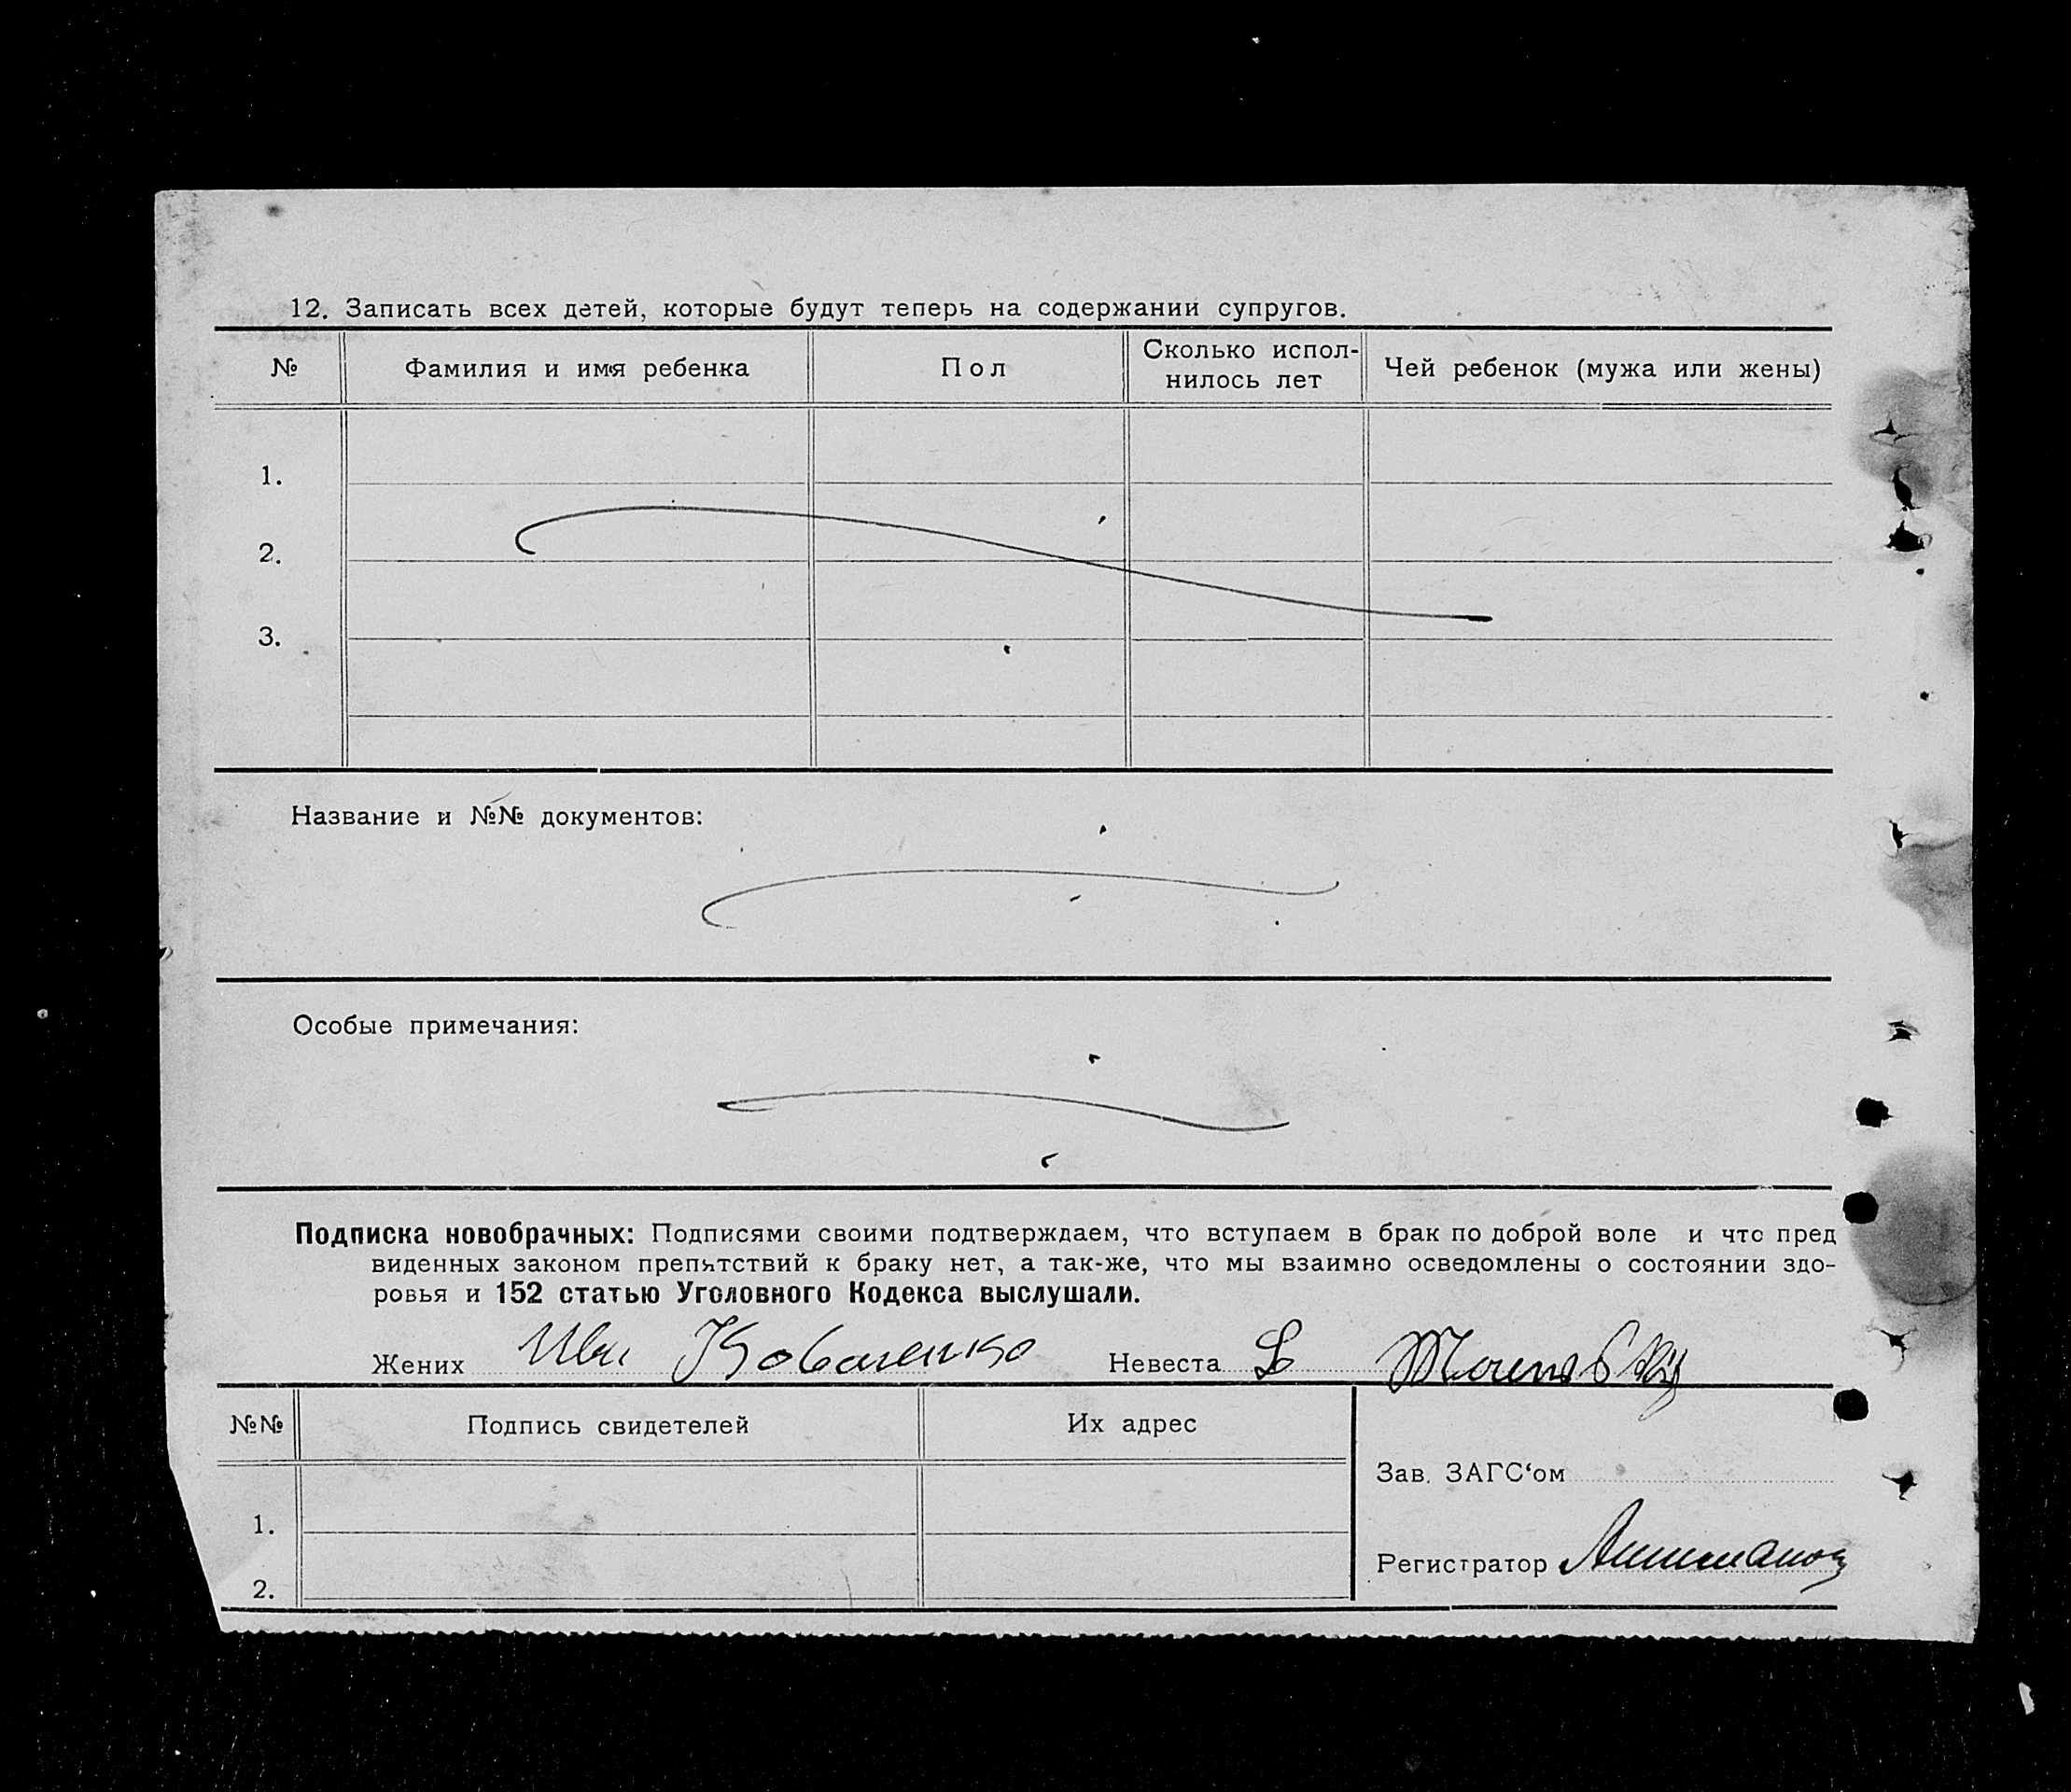 12. Записать всех детей, которые будут теперь на содержании супругов.
№ Фамилия и имя ребенка Пол Сколько испол-нилось лет Чей ребенок (мужа или жены)
1.
2.
3.
Название и №№ документов:
Особые примечания:
Подписка новобрачных: Подписями своими подтверждаем, что вступаем в брак по доброй воле и что пред
виденных законом препятствий к браку нет, а так-же, что мы взаимно осведомлены о состоянии здо-
ровья и 152 статью Уголовного Кодекса выслушали.
Жених Иван Коваленко Невеста
№№ Подпись свидетелей Их адрес
Зав. ЗАГС‘ом
1.
Регистратор
2.